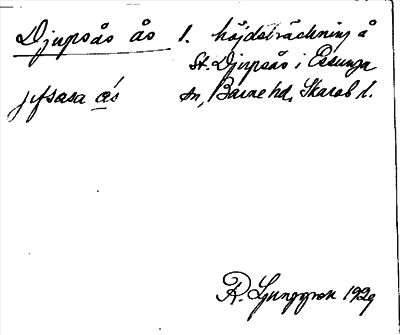 Djupsås ås 1. höjdsträckning å
St. Djupsås i Essunga
jɥsasa ås sn, Barne hd, Skarab. l.
R. Ljunggren 1929